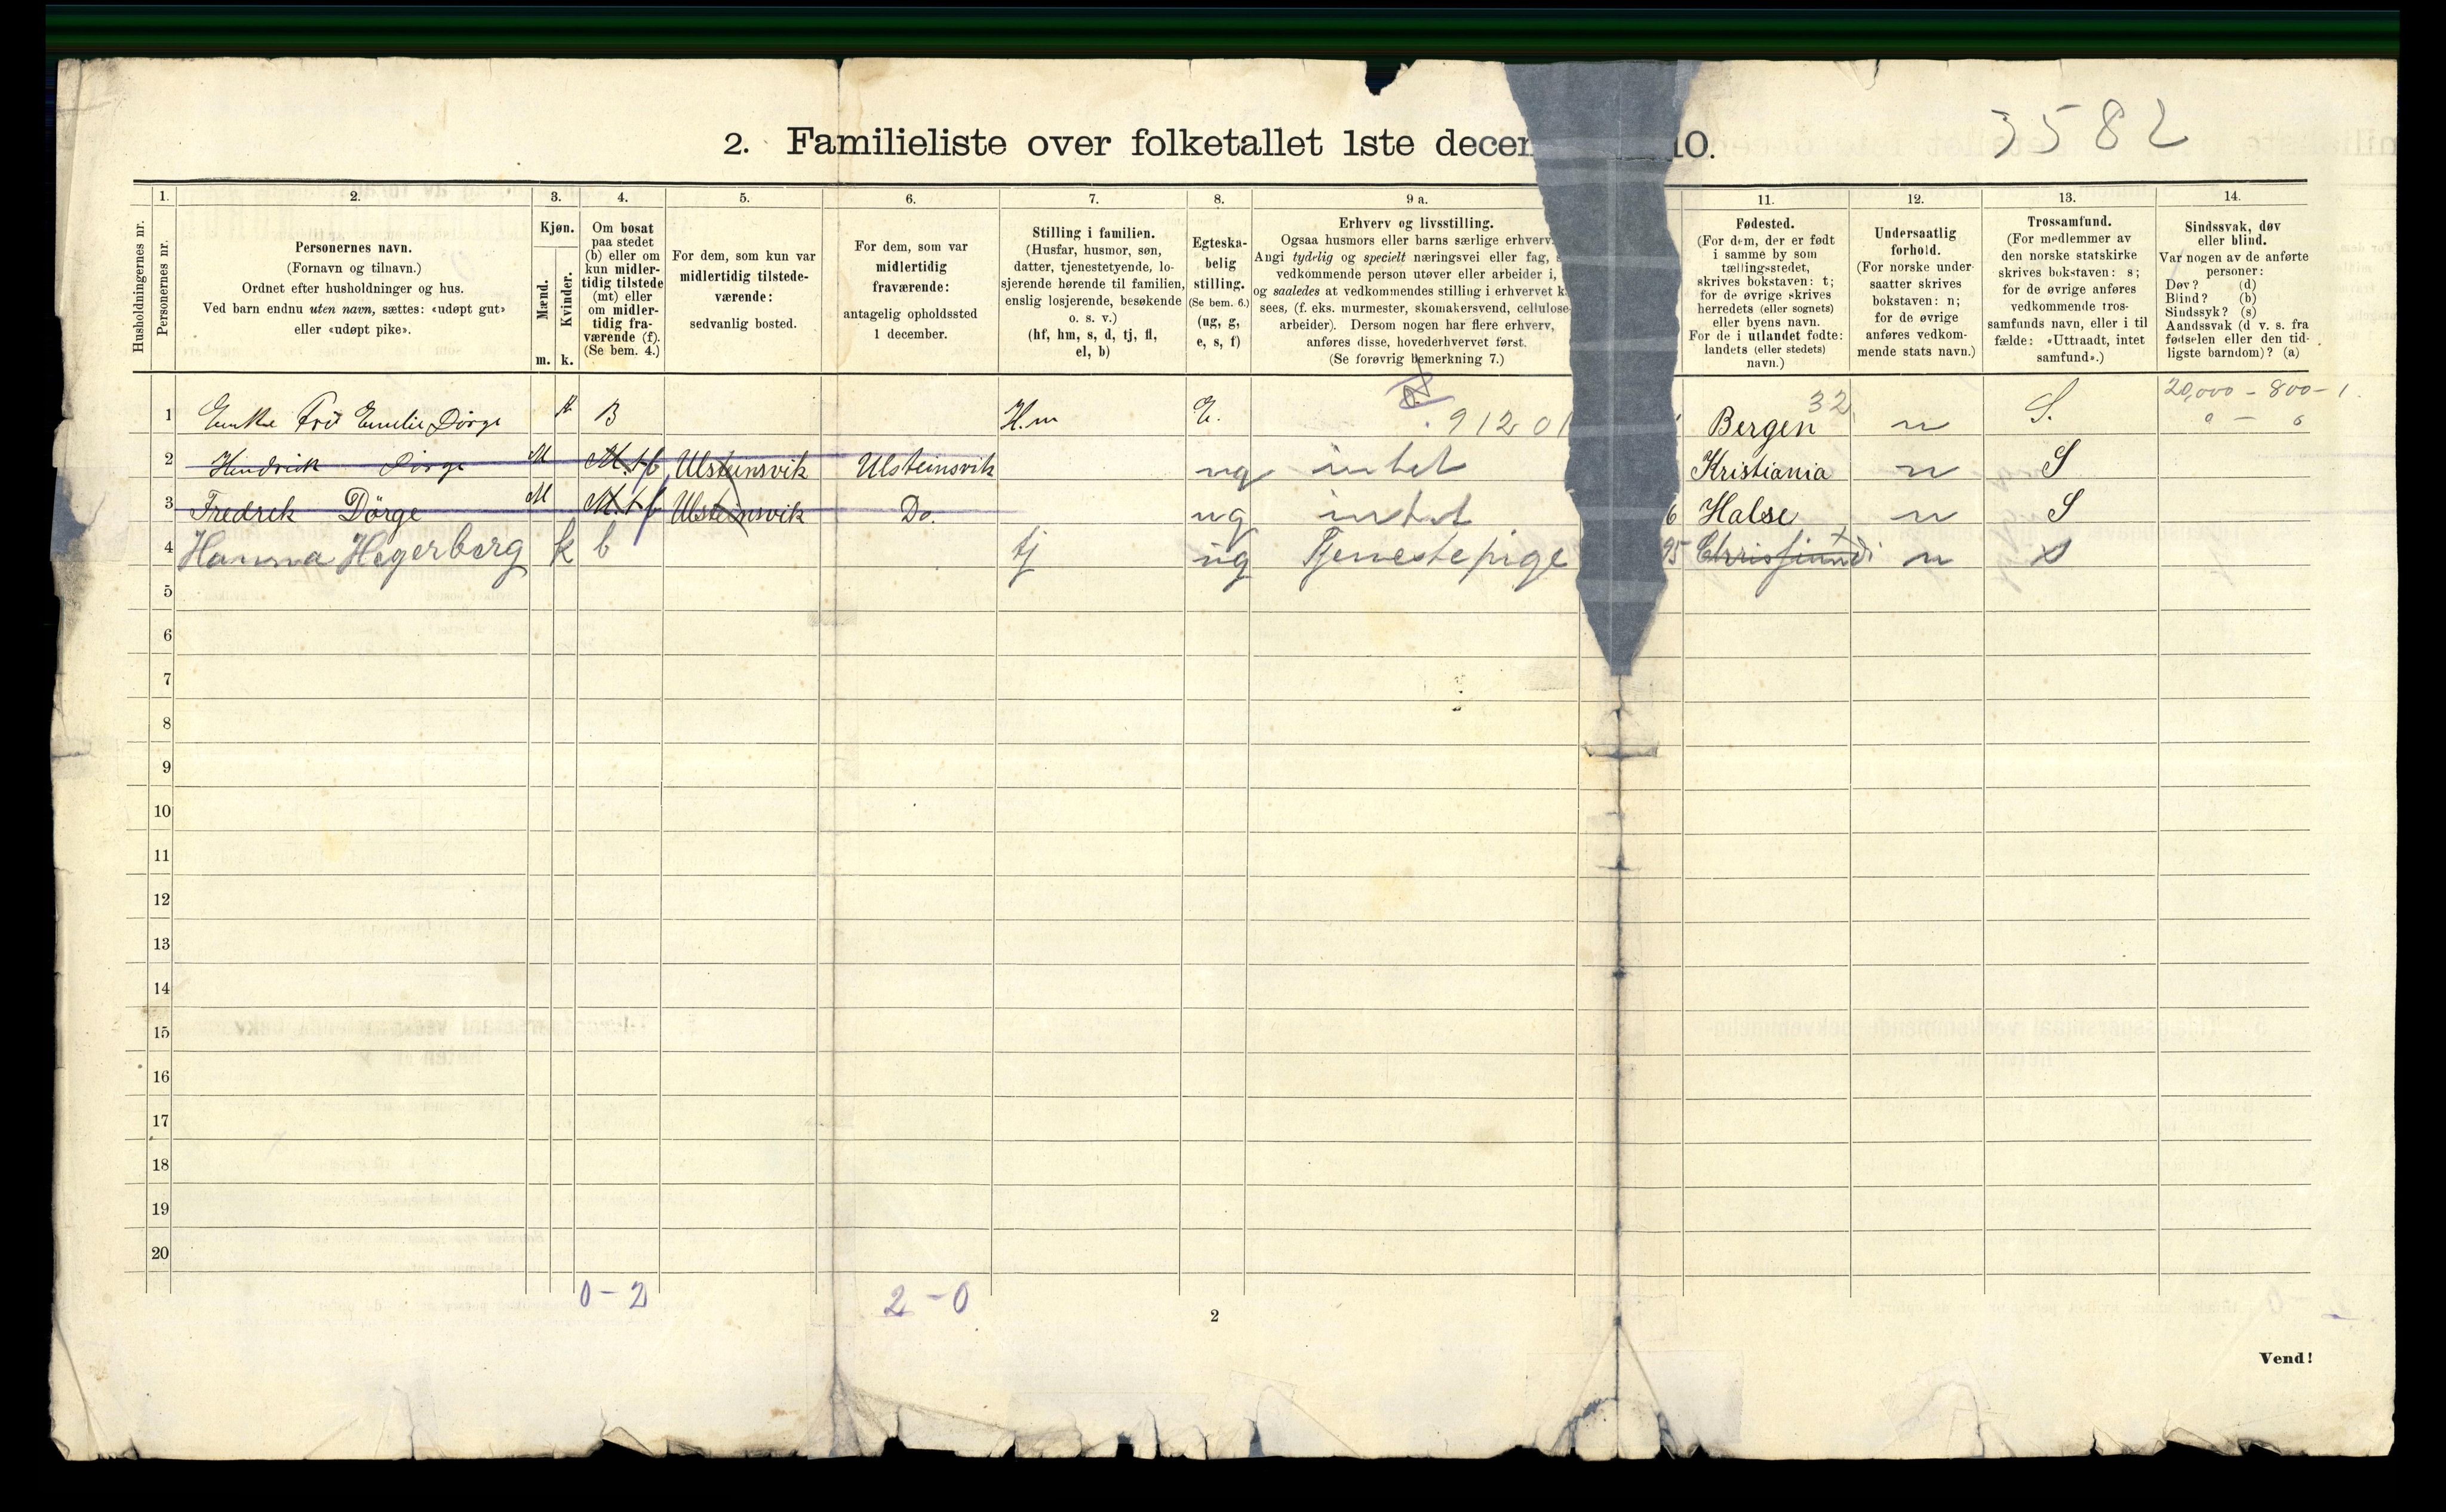 3582
2. Familieliste over folketallet 1ste decem 10.
1. 2. 3. 4. 5. 6. 7. 8. 9 a. 11. 12. 13. 14.
Husholdningernes nr.
Personernes nr.
Personernes navn.
(Fornavn og tilnavn.)
Ordnet efter husholdninger og hus.
Ved barn endnu uten navn, sættes: «udøpt gut»
eller «udøpt pike».
Kjøn.
Mænd.
Kvinder.
m. k.
Om bosat
paa stedet
(b) eller om
kun midler-
tidig tilstede
(mt) eller
om midler-
tidig fra-
værende (f).
(Se bem. 4.)
For dem, som kun var
midlertidig tilstede-
værende:
sedvanlig bosted.
For dem, som var
midlertidig
fraværende:
antagelig opholdssted
1 december.
Stilling i familien.
(Husfar, husmor, søn,
datter, tjenestetyende, lo-
sjerende hørende til familien,
enslig losjerende, besøkende
o. s. v.)
(hf, hm, s, d, tj, fl,
el, b)
Egteska-
belig
stilling.
(Se bem. 6.)
(ug, g,
e, s, f)
Erhverv og livsstilling.
Ogsaa husmors eller barns særlige erhverv.
Angi tydelig og specielt næringsvei eller fag, s
vedkommende person utøver eller arbeider i,
og saaledes at vedkommendes stilling i erhvervet k
sees, (f. eks. murmester, skomakersvend, cellulose-
arbeider). Dersom nogen har flere erhverv,
anføres disse, hovederhvervet først.
(Se forøvrig bemerkning 7.)
Fødested.
(For dem, der er født
i samme by som
tællingsstedet,
skrives bokstaven: t;
for de øvrige skrives
herredets (eller sognets)
eller byens navn.
For de i utlandet fødte:
landets (eller stedets)
navn.)
Undersaatlig
forhold.
(For norske under-
saatter skrives
bokstaven: n;
for de øvrige
anføres vedkom-
mende stats navn.)
Trossamfund.
(For medlemmer av
den norske statskirke
skrives bokstaven: s;
for de øvrige anføres
vedkommende tros-
samfunds navn, eller i til
fælde: «Uttraadt, intet
samfund».)
Sindssvak, døv
eller blind.
Var nogen av de anførte
personer:
Døv? (d)
Blind? (b)
Sindssyk? (s)
Aandssvak (d v. s. fra
fødselen eller den tid-
ligste barndom)? (a)
20,000 - 800 - 1.
1 Enke Fru Emilie Dörge k B H.m E. 91201 Bergen 32 n S. 0 - 0
2 Hindrik Dörge M M.t f Ulsteinsvik Ulsteinsvik ug intet Kristiania n S
3 Fredrek Dörge M M.t f Ulsteinsvik Do. ug intet 6 Halse n S
4 Hanna Hegerberg k b tj ug Tjenestepige 95 n s
5
6
7
8
9
10
11
12
13
14
15
16
17
18
19
20
0 - 2 2 - 0
2
Vend!